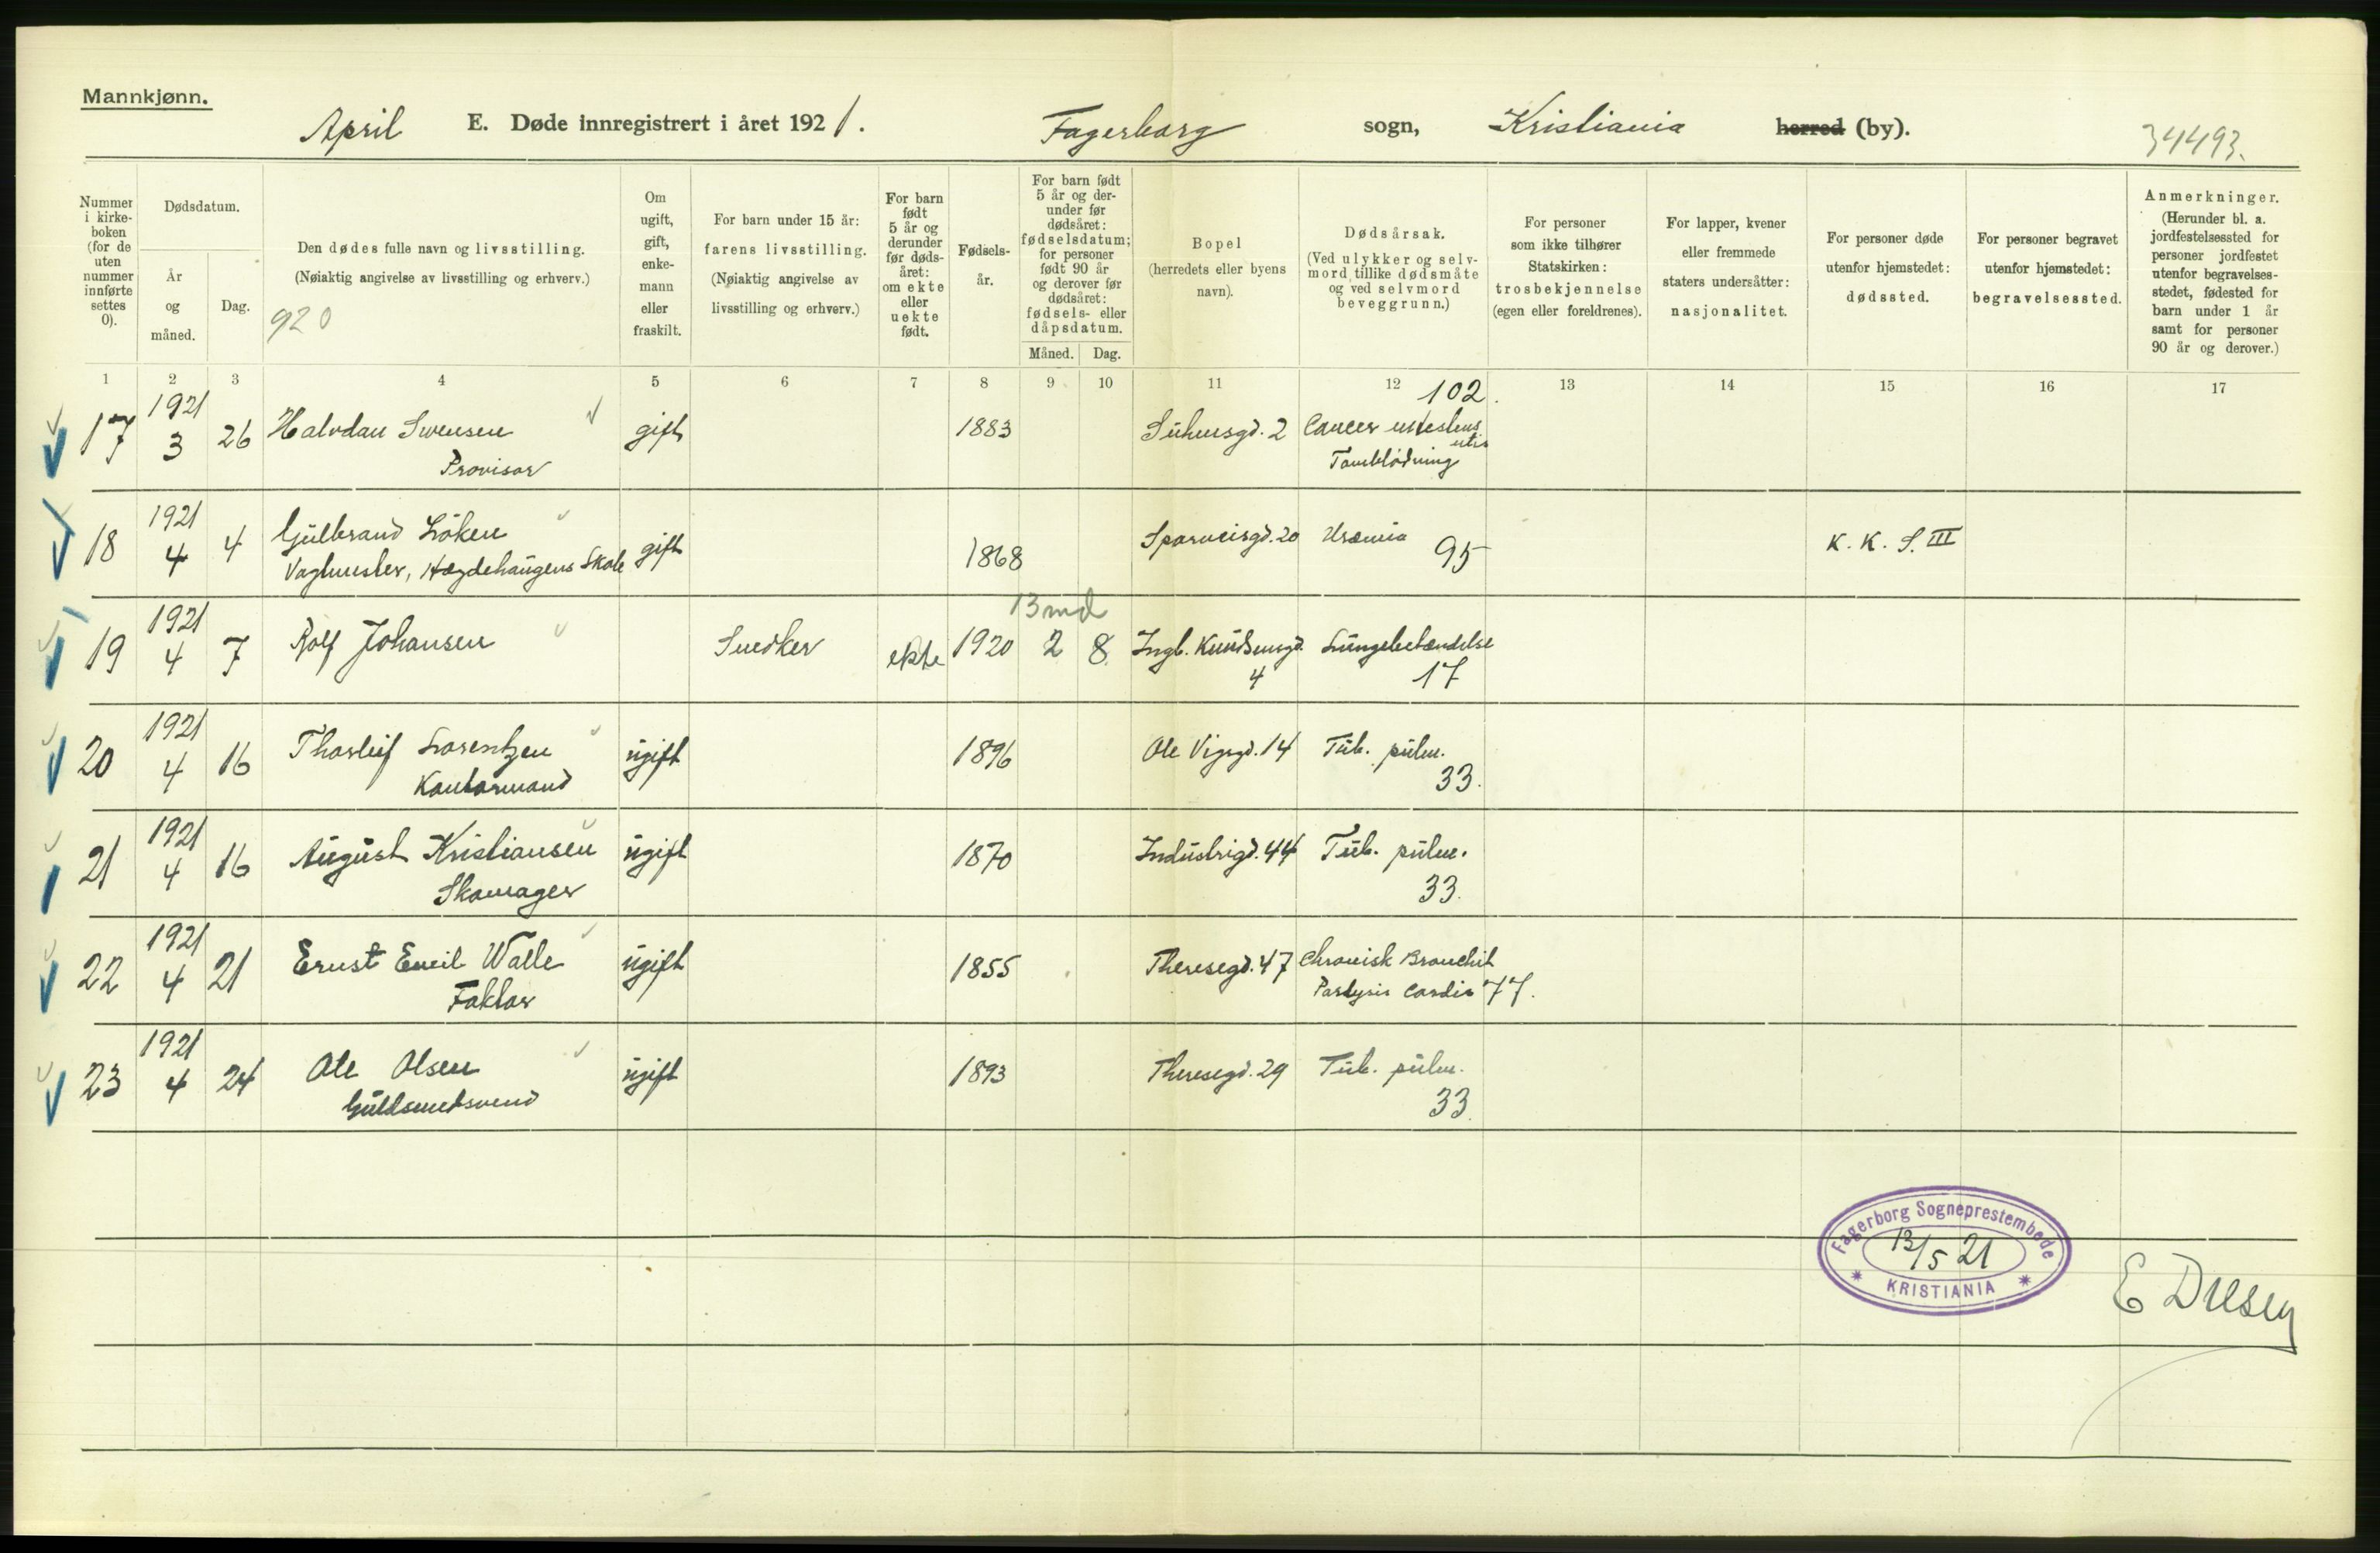 Mannkjønn.
April E. Døde innregistrert i året 1921. Fagerborg sogn, Kristiania herred (by). 34493.
Nummer i kirkeboken (for de uten nummer innførte settes 0).
Dødsdatum.
År og måned.
Dag.
Den dødes fulle navn og livsstilling.
(Nøiaktig angivelse av livsstilling og erhverv.)
920
Om ugift, gift, enkemann eller fraskilt.
For barn under 15 år: farens livsstilling.
(Nøiaktig angivelse av livsstilling og erhverv.)
For barn født 5 år og derunder før dødsåret: om ekte eller uekte født.
Fødselsår.
For barn født 5 år og derunder før dødsåret: fødselsdatum; for personer født 90 år og derover før dødsåret: fødsels- eller dåpsdatum.
Måned. Dag.
Bopel
(herredets eller byens navn).
Dødsårsak.
(Ved ulykker og selvmord tillike dødsmåte og ved selvmord beveggrunn.)
For personer som ikke tilhører Statskirken: trosbekjennelse (egen eller foreldrenes).
For lapper, kvener eller fremmede staters undersåtter: nasjonalitet.
For personer døde utenfor hjemstedet: dødssted.
For personer begravet utenfor hjemstedet: begravelsessted.
Anmerkninger.
(Herunder bl. a. jordfestelsessted for personer jordfestet utenfor begravelsesstedet, fødested for barn under 1 år samt for personer 90 år og derover.)
1 2 3 4 5 6 7 8 9 10 11 12 13 14 15 16 17
1921 102.
17 3 26 Halvdan Svensen gift 1883 Suhmsgd. 2 Cancer
Provisor Tarmblödning
1921
18 4 4 Gulbrand Löken gift 1868 Sporveisgd. 20 Uræmia 95 K. K. S. III
Vagtmester, Hægdehaugens Skole
1921 13 md
19 4 7 Rolf Johansen Snedker ekte 1920 2 8 Ingb. Knudsensgd. 4 Lungebetændelse
17
1921
20 4 16 Thorleif Lorentzen ugift 1896 Ole Vigsgd. 14 Tub. pulm.
Kontormand 33.
1921
21 4 16 August Kristiansen ugift 1870 Industrigd. 44 Tub. pulm.
Skomager 33.
1921
22 4 21 Ernst Emil Walle ugift 1855 Theresegd. 47 Chronisk Bronchit
Faktor Paralysis Cordis 77.
1921
23 4 24 Ole Olsen ugift 1893 Theresegd. 29 Tub. pulm.
Guldsmedsvend 33.
Fagerborg Sogneprestembede
13/5 21
KRISTIANIA